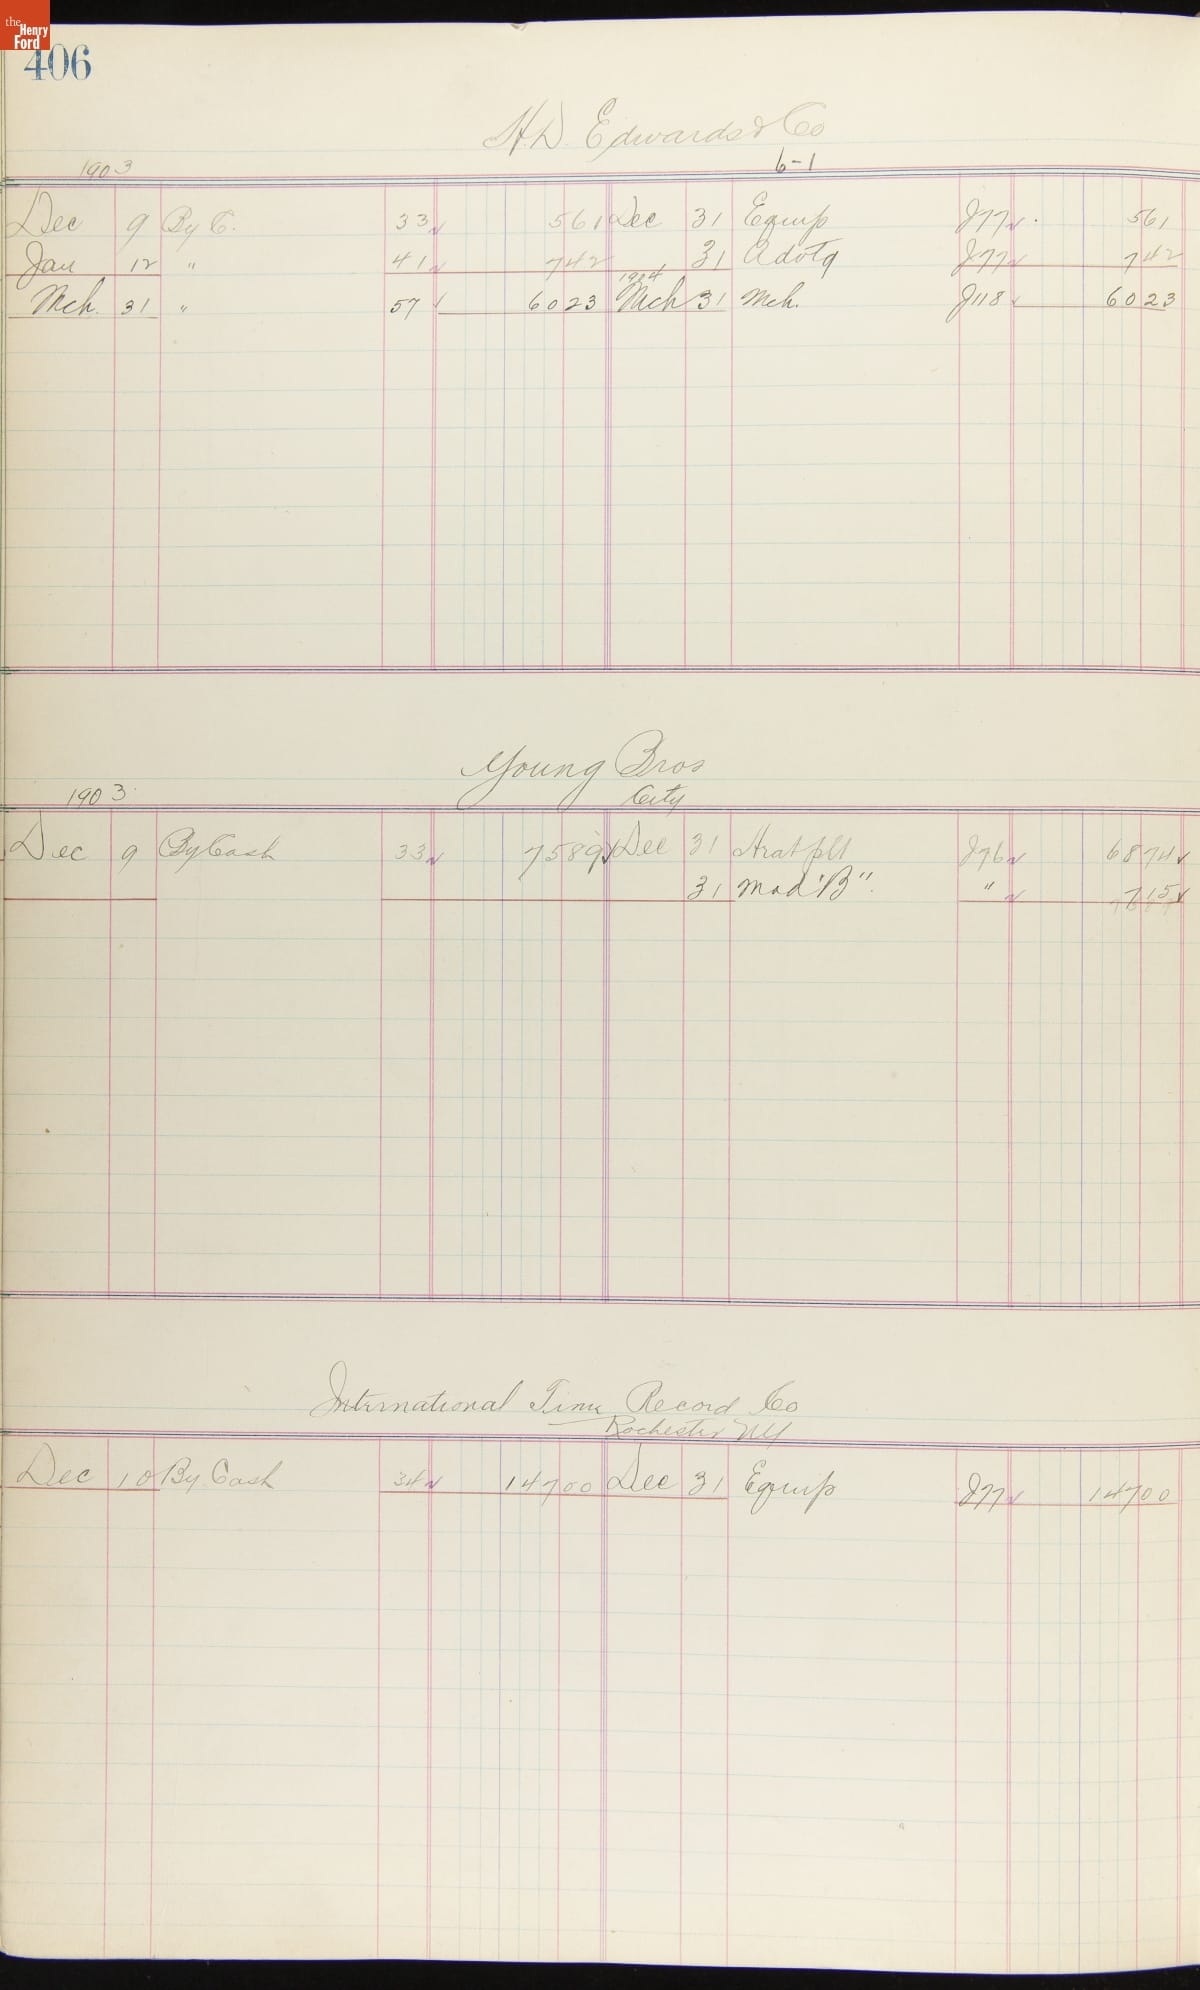 the Henry Ford
406
H.D. Edwards & Co
1903 6-1
Dec 9 By C. 33 5 61 Dec 31 Equip J77 5 61
Jan 12 " 41 7 42 31 Advtg J77 7 42
1904
Mch. 31 " 57 60 23 Mch 31 Mch. J118 60 23
Young Bros
1903 City
Dec 9 By Cash 33 75 89 Dec 31 Heat plt J76 68 74
31 Mod "B". " 7 15
International Time Record Co
Rochester NY
Dec 10 By Cash 34 147 00 Dec 31 Equip J77 147 00